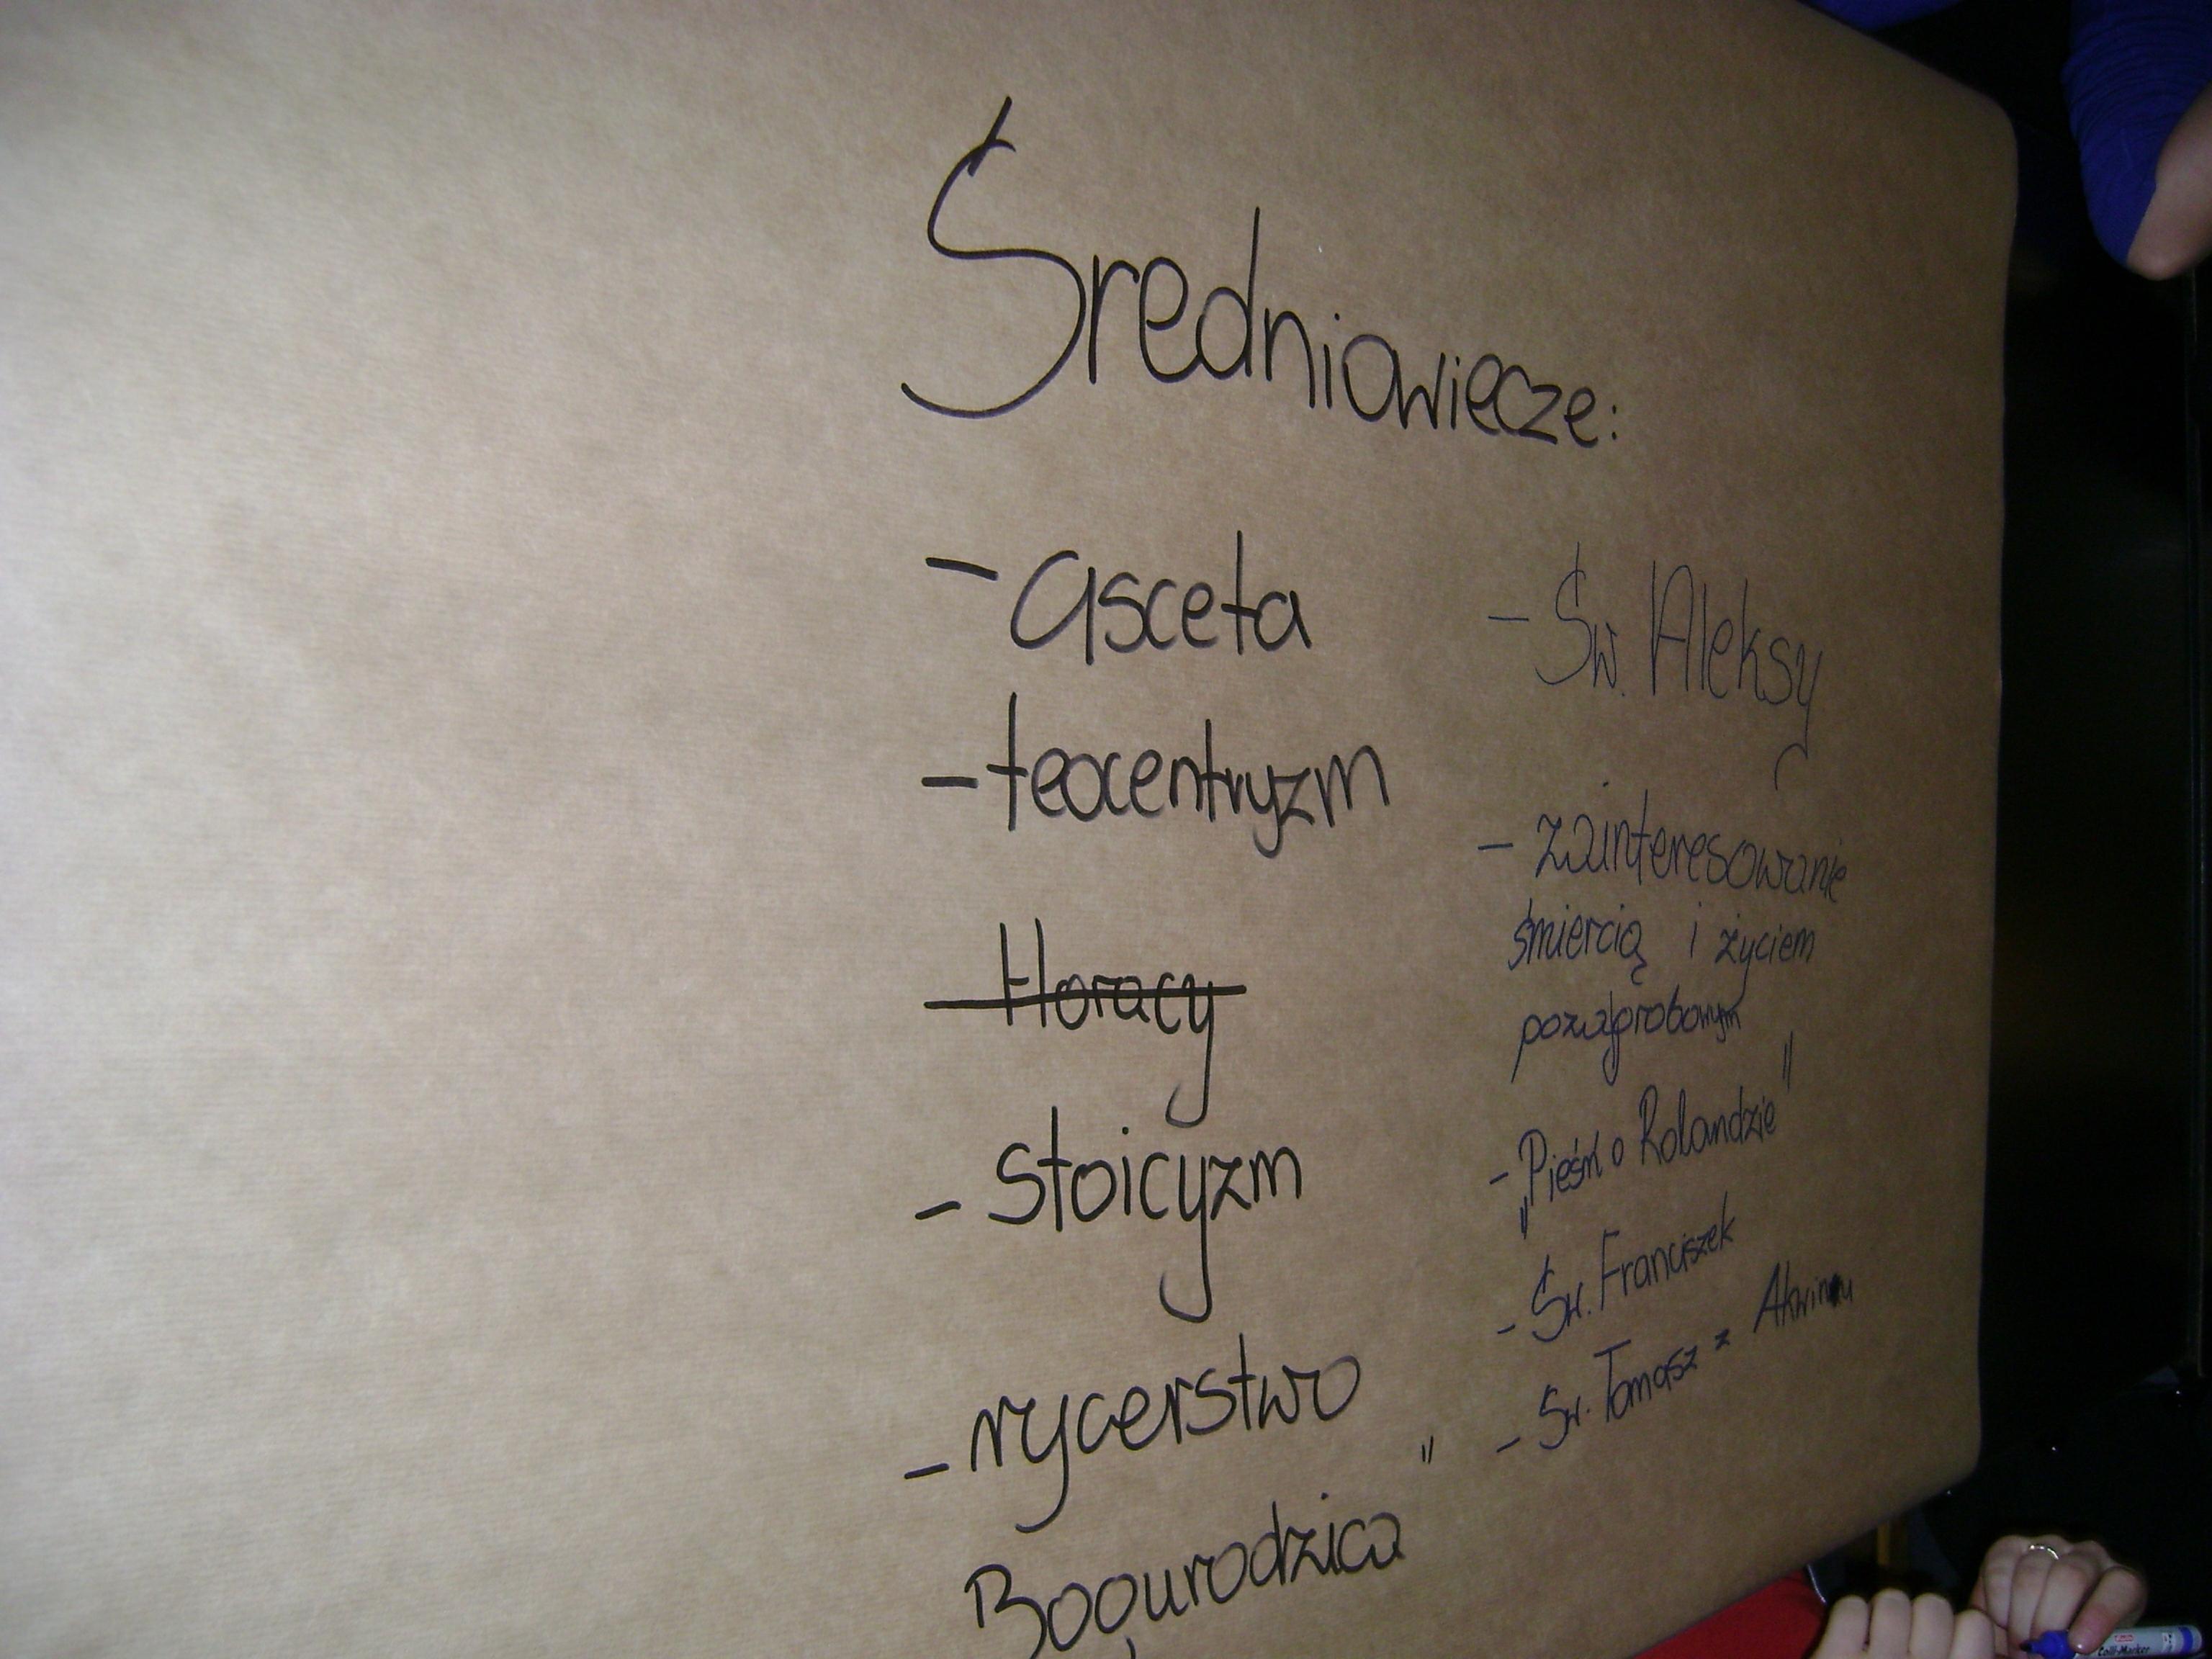 Średniowiecze:
- asceta
- teocentryzm
- Horacy
- stoicyzm
- rycerstwo
Bogurodzica"
- Św. Aleksy
- zainteresowanie
śmiercią i życiem
pozagrobowym
- „Pieśń o Rolandzie"
- Św. Franciszek
- Św. Tomasz z Akwinu
Colli-Marker